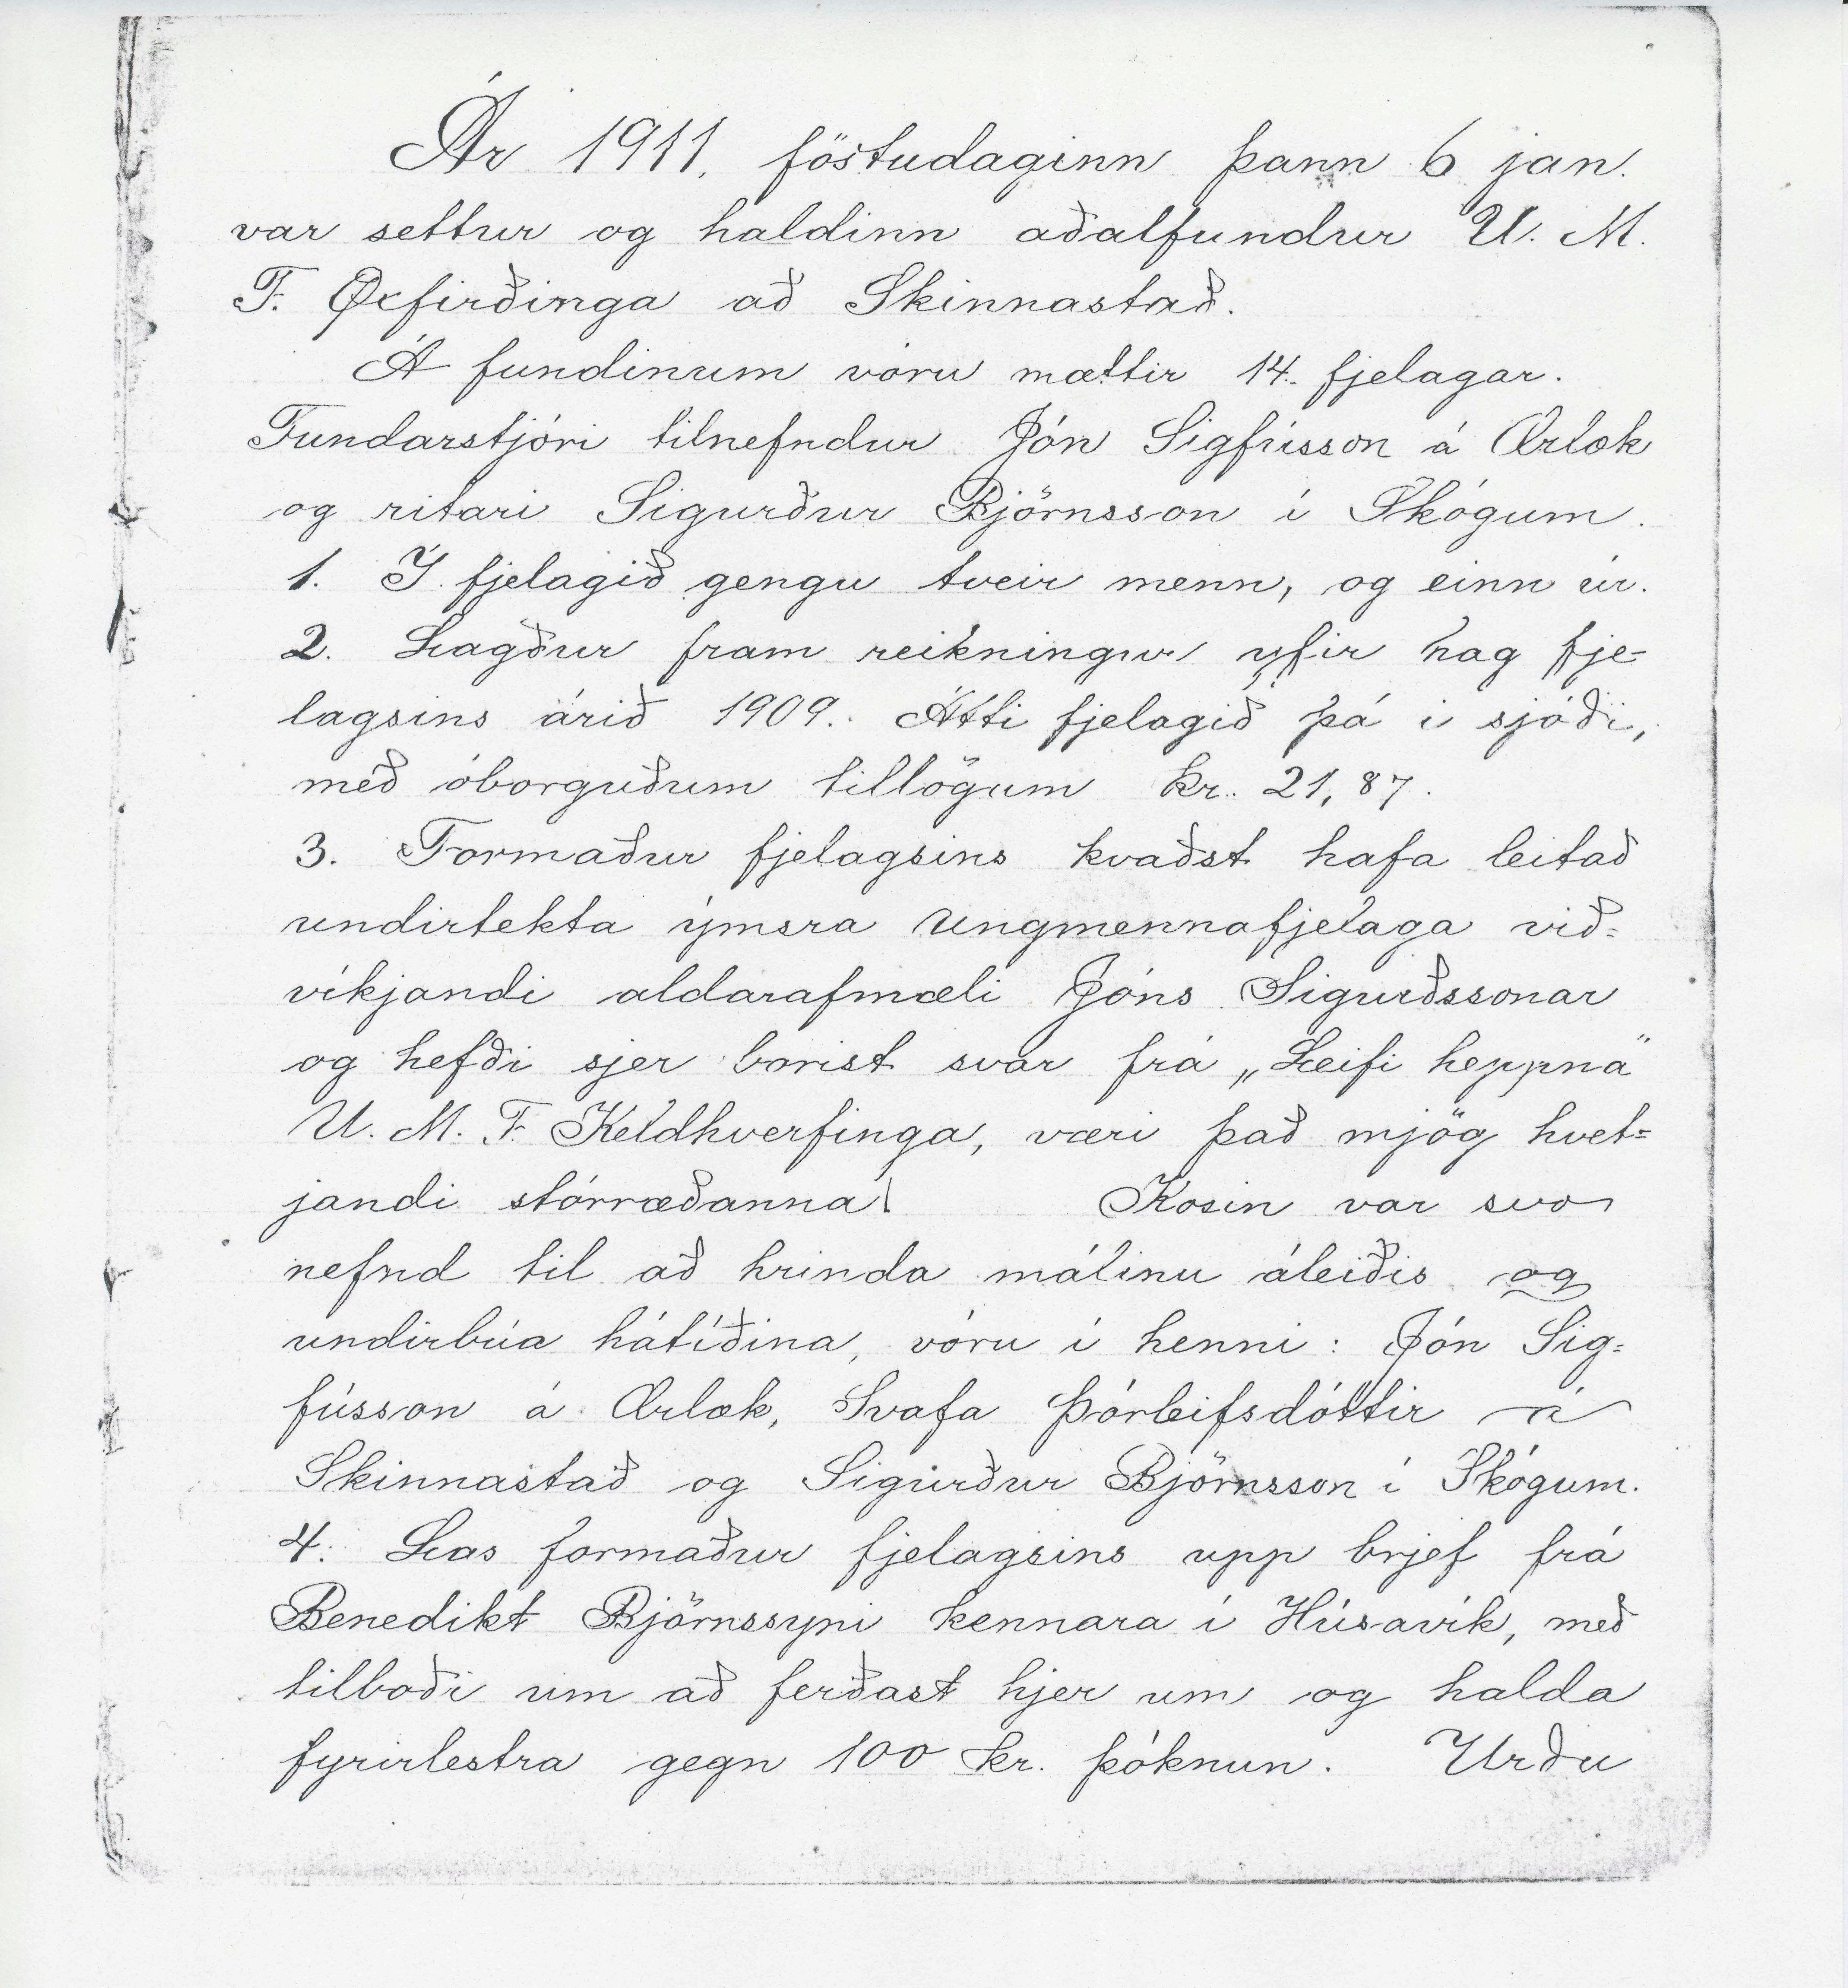 Ár 1911, föstudaginn þann 6 jan.
var settur og haldinn aðalfundur U. M.
F. Øxfirðinga að Skinnastað.
Á fundinum vóru mættir 14. fjelagar.
Fundarstjóri tilnefndur Jón Sigfússon á Ærlæk
og ritari Sigurður Björnsson í Skógum.
1. Í fjelagið gengu tveir menn, og einn úr.
2. Lagður fram reikningur yfir hag fje-
lagsins árið 1909. Átti fjelagið þá í sjóði,
með óborguðum tillögum kr. 21,87.
3. Formaður fjelagsins kvaðst hafa leitað
undirtekta ýmsra Ungmennafjelaga við=
víkjandi aldarafmæli Jóns Sigurðssonar
og hefði sjer borist svar frá „Leifi heppna"
U. M. F. Keldhverfinga, væri það mjög hvet=
jandi stórræðanna! Kosin var svo
nefnd til að hrinda málinu áleiðis og
undirbúa hátíðina, vóru í henni: Jón Sig=
fússon á Ærlæk, Svafa Þórleifsdóttir á
Skinnastað og Sigurður Björnsson í Skógum.
4. Las formaður fjelagsins upp brjef frá
Benedikt Björnssyni kennara í Húsavík, með
tilboði um að ferðast hjer um og halda
fyrirlestra gegn 100 kr. þóknun. Urðu